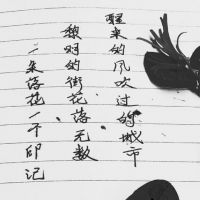 醒来的风吹过的城市
黎明的街花落无数
一朵落花一个印记